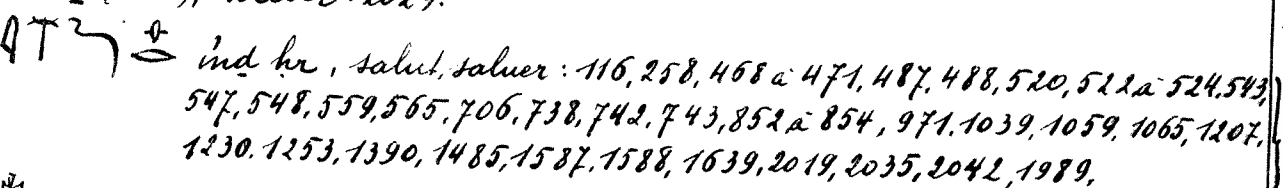 ind ḥr, salut, saluer : 116, 258, 468 à 471, 487, 488, 520, 522 à 524, 543,
547, 548, 559, 565, 706, 738, 742, 743, 852 à 854, 971, 1039, 1059, 1065, 1207,
1230, 1253, 1390, 1485, 1587, 1588, 1639, 2019, 2035, 2042, 1989,